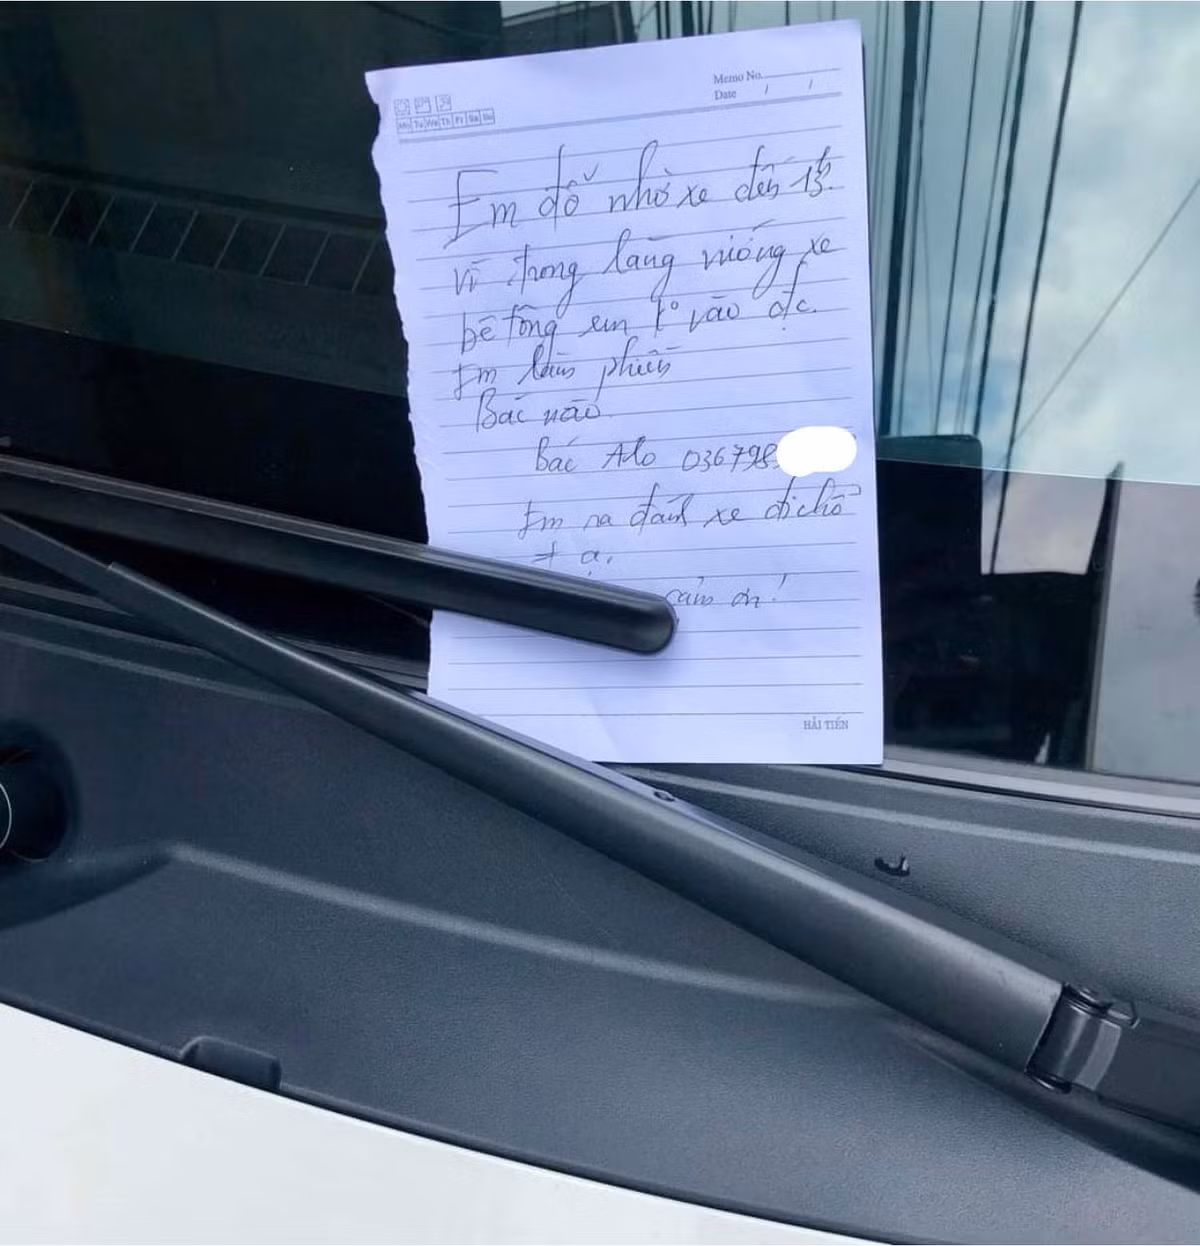 Memo No.
Date / /
Mo Tu We Th Fr Sa Su
Em đỗ nhờ xe đến 13h.
Vì trong làng vướng xe
bê tông em k° vào đc.
Em làm phiền
Bác nào
Bác Alo 036798
Em ra đánh xe đi chỗ
≠ ạ.
cảm ơn!
HẢI TIẾN